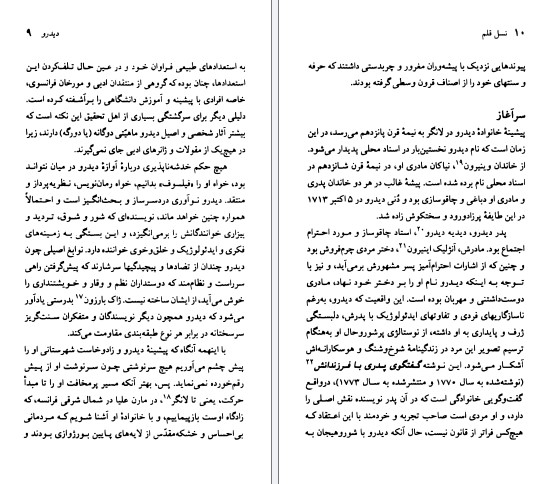 دیدرو ۹
به استعدادهای طبیعی فراوان خود و در عین حال تلف‌کردن این
استعدادها، چنان بوده که گروهی از منتقدان ادبی و مورخان فرانسوی،
خاصه افرادی با پیشینه و آموزش دانشگاهی را برآشفته کرده است.
دلیلی دیگر برای سرگشتگی بسیاری از اهل تحقیق این نکته است که
بیشتر آثار شخصی و اصیل دیدرو ماهیّتی دوگانه (یا دورگه) دارند، زیرا
در هیچ‌یک از مقولات و ژانرهای ادبی جای نمی‌گیرند.
هیچ حکم خدشه‌ناپذیری دربارهٔ آوازهٔ دیدرو در میان نتواند
بود، خواه او را «فیلسوف» بدانیم، خواه رمان‌نویس، نظریه‌پرداز و
منتقد. دیدرو نوآوری دردسرساز و بحث‌انگیز است و احتمالاً
همواره چنین خواهد ماند، نویسنده‌ای که شور و شوق، تردید و
بیزاری خوانندگانش را برمی‌انگیزد، و این بستگی به زمینه‌های
فکری و ایدئولوژیک و خلق‌وخوی خواننده دارد. نوابغ اصیلی چون
دیدرو چندان از تضادها و پیچیدگیها سرشارند که پیش‌گرفتن راهی
سرراست و نظام‌مند که دوستداران نظم و وقار و خویشتنداری را
خوش می‌آید، از ایشان ساخته نیست. ژاک بارزون۱۷ بدرستی یادآور
می‌شود که دیدرو همچون دیگر نویسندگان و متفکران سنت‌گریز
سرسختانه در برابر هر نوع طبقه‌بندی مقاومت می‌کند.
با اینهمه آنگاه که پیشینهٔ دیدرو و زادوخاست شهرستانی او را
پیش چشم می‌آوریم هیچ سرنوشتی چون سرنوشت او از پیش
رقم‌خورده نمی‌نماید. پس، بهتر آنکه مسیر پرمخافت او را تا مبدأ
حرکت، یعنی تا لانگر۱۸، در مارن علیا در شمال شرقی فرانسه، که
زادگاه اوست بازپیماییم، و با خانوادهٔ او آشنا شویم که مردمانی
بی‌احساس و خشکه‌مقدّس از لایه‌های پایین بورژوازی بودند و
۱۰ نسل قلم
پیوندهایی نزدیک با پیشه‌وران مغرور و چربدستی داشتند که حرفه
و سنتهای خود را از اصناف قرون وسطی گرفته بودند.
سرآغاز
پیشینهٔ خانوادهٔ دیدرو در لانگر به نیمهٔ قرن پانزدهم می‌رسد، در این
زمان است که نام دیدرو نخستین‌بار در اسناد محلی پدیدار می‌شود.
از خاندان وینیرون۱۹، نیاکان مادری او، در نیمهٔ قرن شانزدهم در
اسناد محلی نام برده شده است. پیشهٔ غالب در هر دو خاندان پدری
و مادری او دباغی و چاقوسازی بود و دُنی دیدرو در ۵ اکتبر ۱۷۱۳
در این طایفهٔ پرزادورود و سختکوش زاده شد.
پدر دیدرو، دیدیه دیدرو۲۰، استاد چاقوساز و مورد احترام
اجتماع بود. مادرش، آنژلیک اینیرون۲۱، دختر مردی چرم‌فروش بود
و چنین که از اشارات احترام‌آمیز پسر مشهورش برمی‌آید، و نیز با
توجه به اینکه دیدرو نام او را بر دختر خود نهاد، مادری
دوست‌داشتنی و مهربان بوده است. این واقعیت که دیدرو، به‌رغم
ناسازگاریهای فردی و تفاوتهای ایدئولوژیک با پدرش، دلبستگی
ژرف و پایداری به او داشته، از نوستالژی پرشورو‌حال او به‌هنگام
ترسیم تصویر این مرد در زندگینامهٔ شوخ‌وشنگ و هوسکارانه‌اش
آشکار می‌شود. این نوشته گفتگوی پدری با فرزندانش۲۲
(نوشته‌شده به سال ۱۷۷۰ و منتشرشده به سال ۱۷۷۳)، درواقع
گفت‌وگویی خانوادگی است که در آن پدر نویسنده نقش اصلی را
دارد، و او مردی است صاحب تجربه و خردمند با این اعتقاد که
هیچ‌کس فراتر از قانون نیست، حال آنکه دیدرو با شوروهیجان به